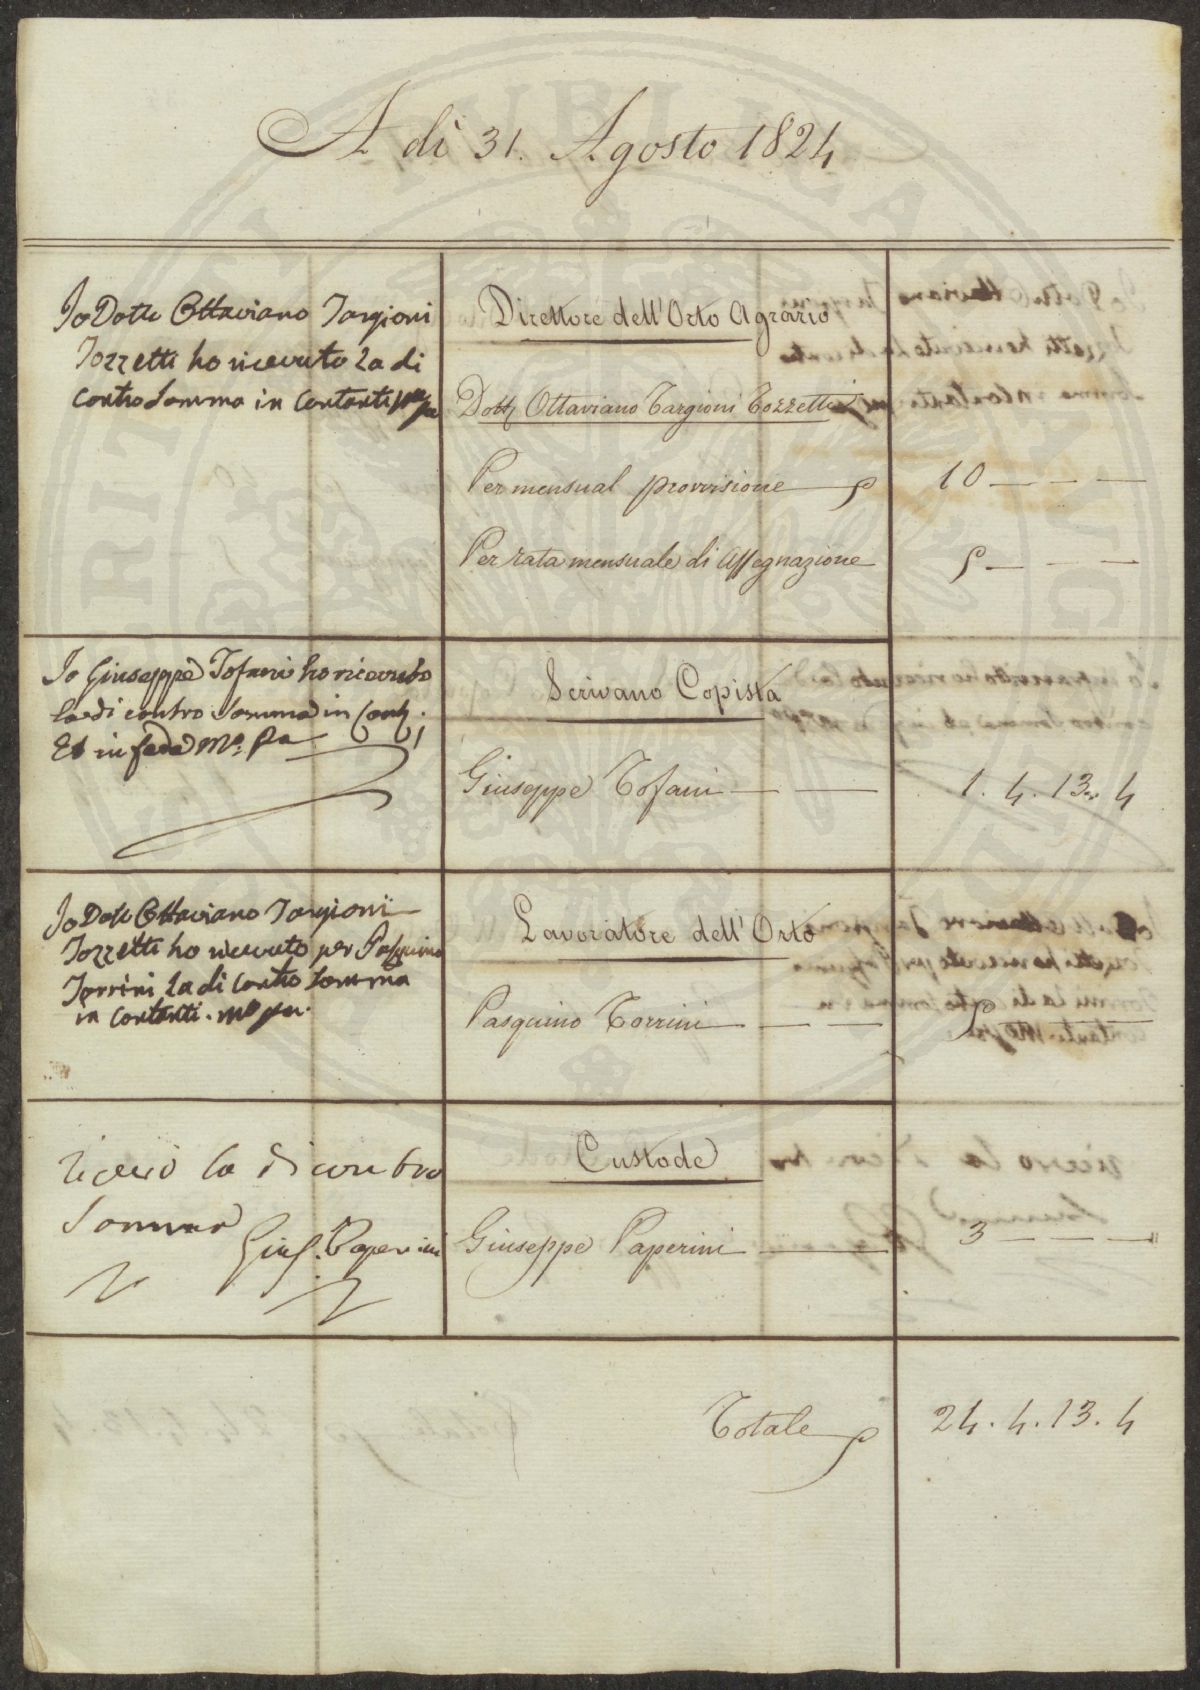 A dì 31. Agosto 1824
Io Dott. Ottaviano Targioni
Tozzetti ho ricevuto la di
contro Somma in contanti mo pa
Direttore dell'Orto Agrario
Dott. Ottaviano Targioni Tozzetti
Per mensual provvisione 10 — — —
Per rata mensuale di Assegnazione 5 — — —
Io Giuseppe Tofani ho ricevuto
la di contro Somma in Cont.
Et in fede Mo. Pa
Scrivano Copista
Giuseppe Tofani — — 1. 4. 13. 4
Io Dott Ottaviano Targioni
Tozzetti ho ricevuto per Pasquino
Torrini la di contro somma
in contanti. mo pa.
Lavoratore dell'Orto
Pasquino Torrini — — 5
ricevo la di contro
Somma
Gius. Paperini
Custode
Giuseppe Paperini — 3 — — —
Totale 24. 4. 13. 4